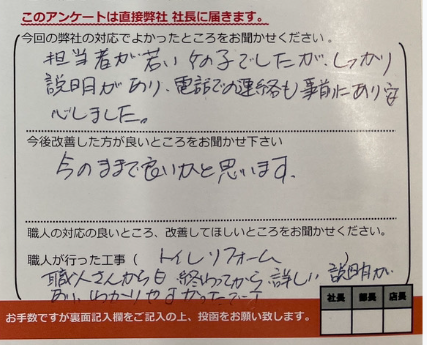 このアンケートは直接弊社 社長に届きます。
今回の弊社の対応でよかったところをお聞かせください。
担当者が若い女の子でしたが、しっかり
説明があり、電話での連絡も事前にあり安
心しました。
今後改善した方が良いところをお聞かせ下さい
今のままで良いかと思います。
職人の対応の良いところ、改善してほしいところをお聞かせください。
職人が行った工事（ トイレリフォーム ）
職人さんからも 終わってから 詳しい 説明が
あり、わかりやすかったです
社長 部長 店長
お手数ですが裏面記入欄をご記入の上、投函をお願い致します。